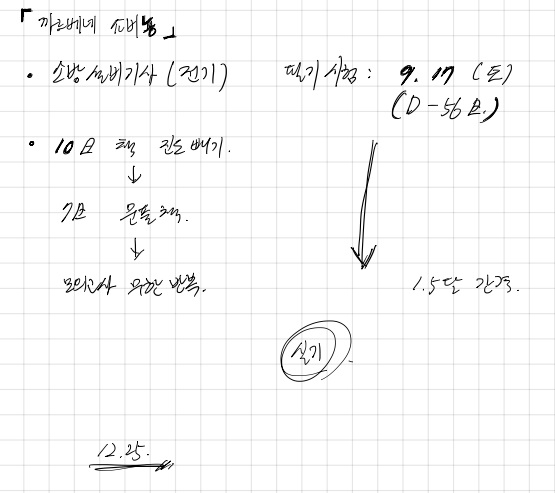 「까르베네 쇼비뇽」
• 소방설비기사 (전기) 필기시험 : 9. 17 (토)
(D-56일.)
• 10일 책 진도 빼기.
↓
7일 문풀책.
↓
모의고사 무한 반복. 1.5달 간격.
실기
12.25.